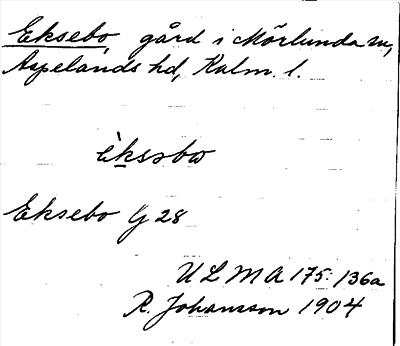 Eksebo gård i Mörlunda sn,
Aspelands hd, Kalm. l.
èksəbω
Eksebo G 28
ULMA 175:136a
R. Johansson 1904